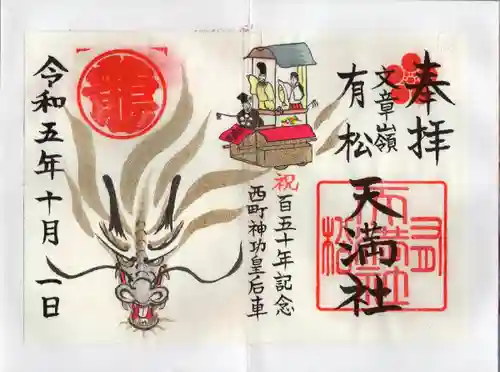 奉拝
文章嶺
有松
天満社
祝
百五十年記念
西町神功皇后車
龍
令和五年十月一日